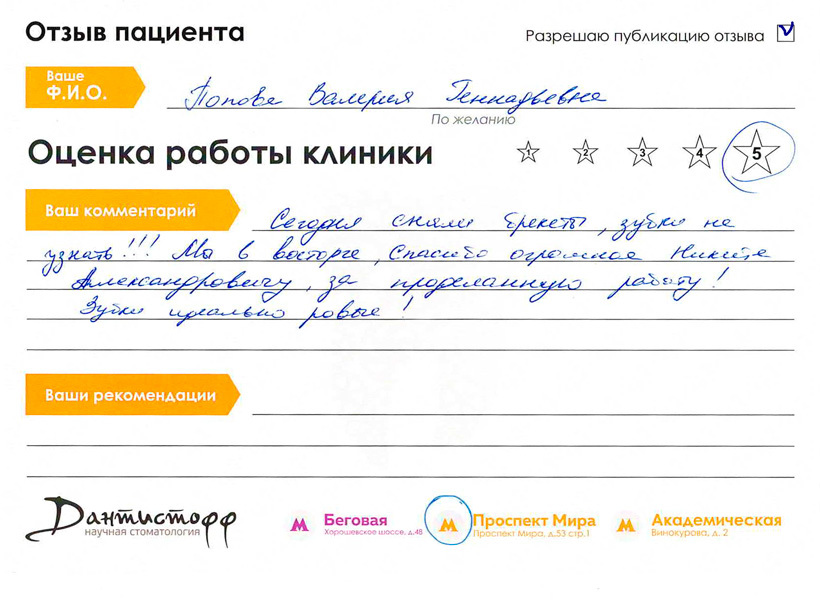 Отзыв пациента
Разрешаю публикацию отзыва V
Ваше
Ф.И.О.
Попова Валерия Геннадьевна
По желанию
Оценка работы клиники 1 2 3 4 5
Ваш комментарий
Сегодня сняли брекеты, зубки не
узнать!!! Мы в восторге, Спасибо огромное Никите
Александровичу, за проделанную работу!
Зубки идеально ровые!
Ваши рекомендации
Дантистофф
научная стоматология
М Беговая
Хорошевское шоссе, д.48
М Проспект Мира
Проспект Мира, д.53 стр.1
М Академическая
Винокурова, д. 2